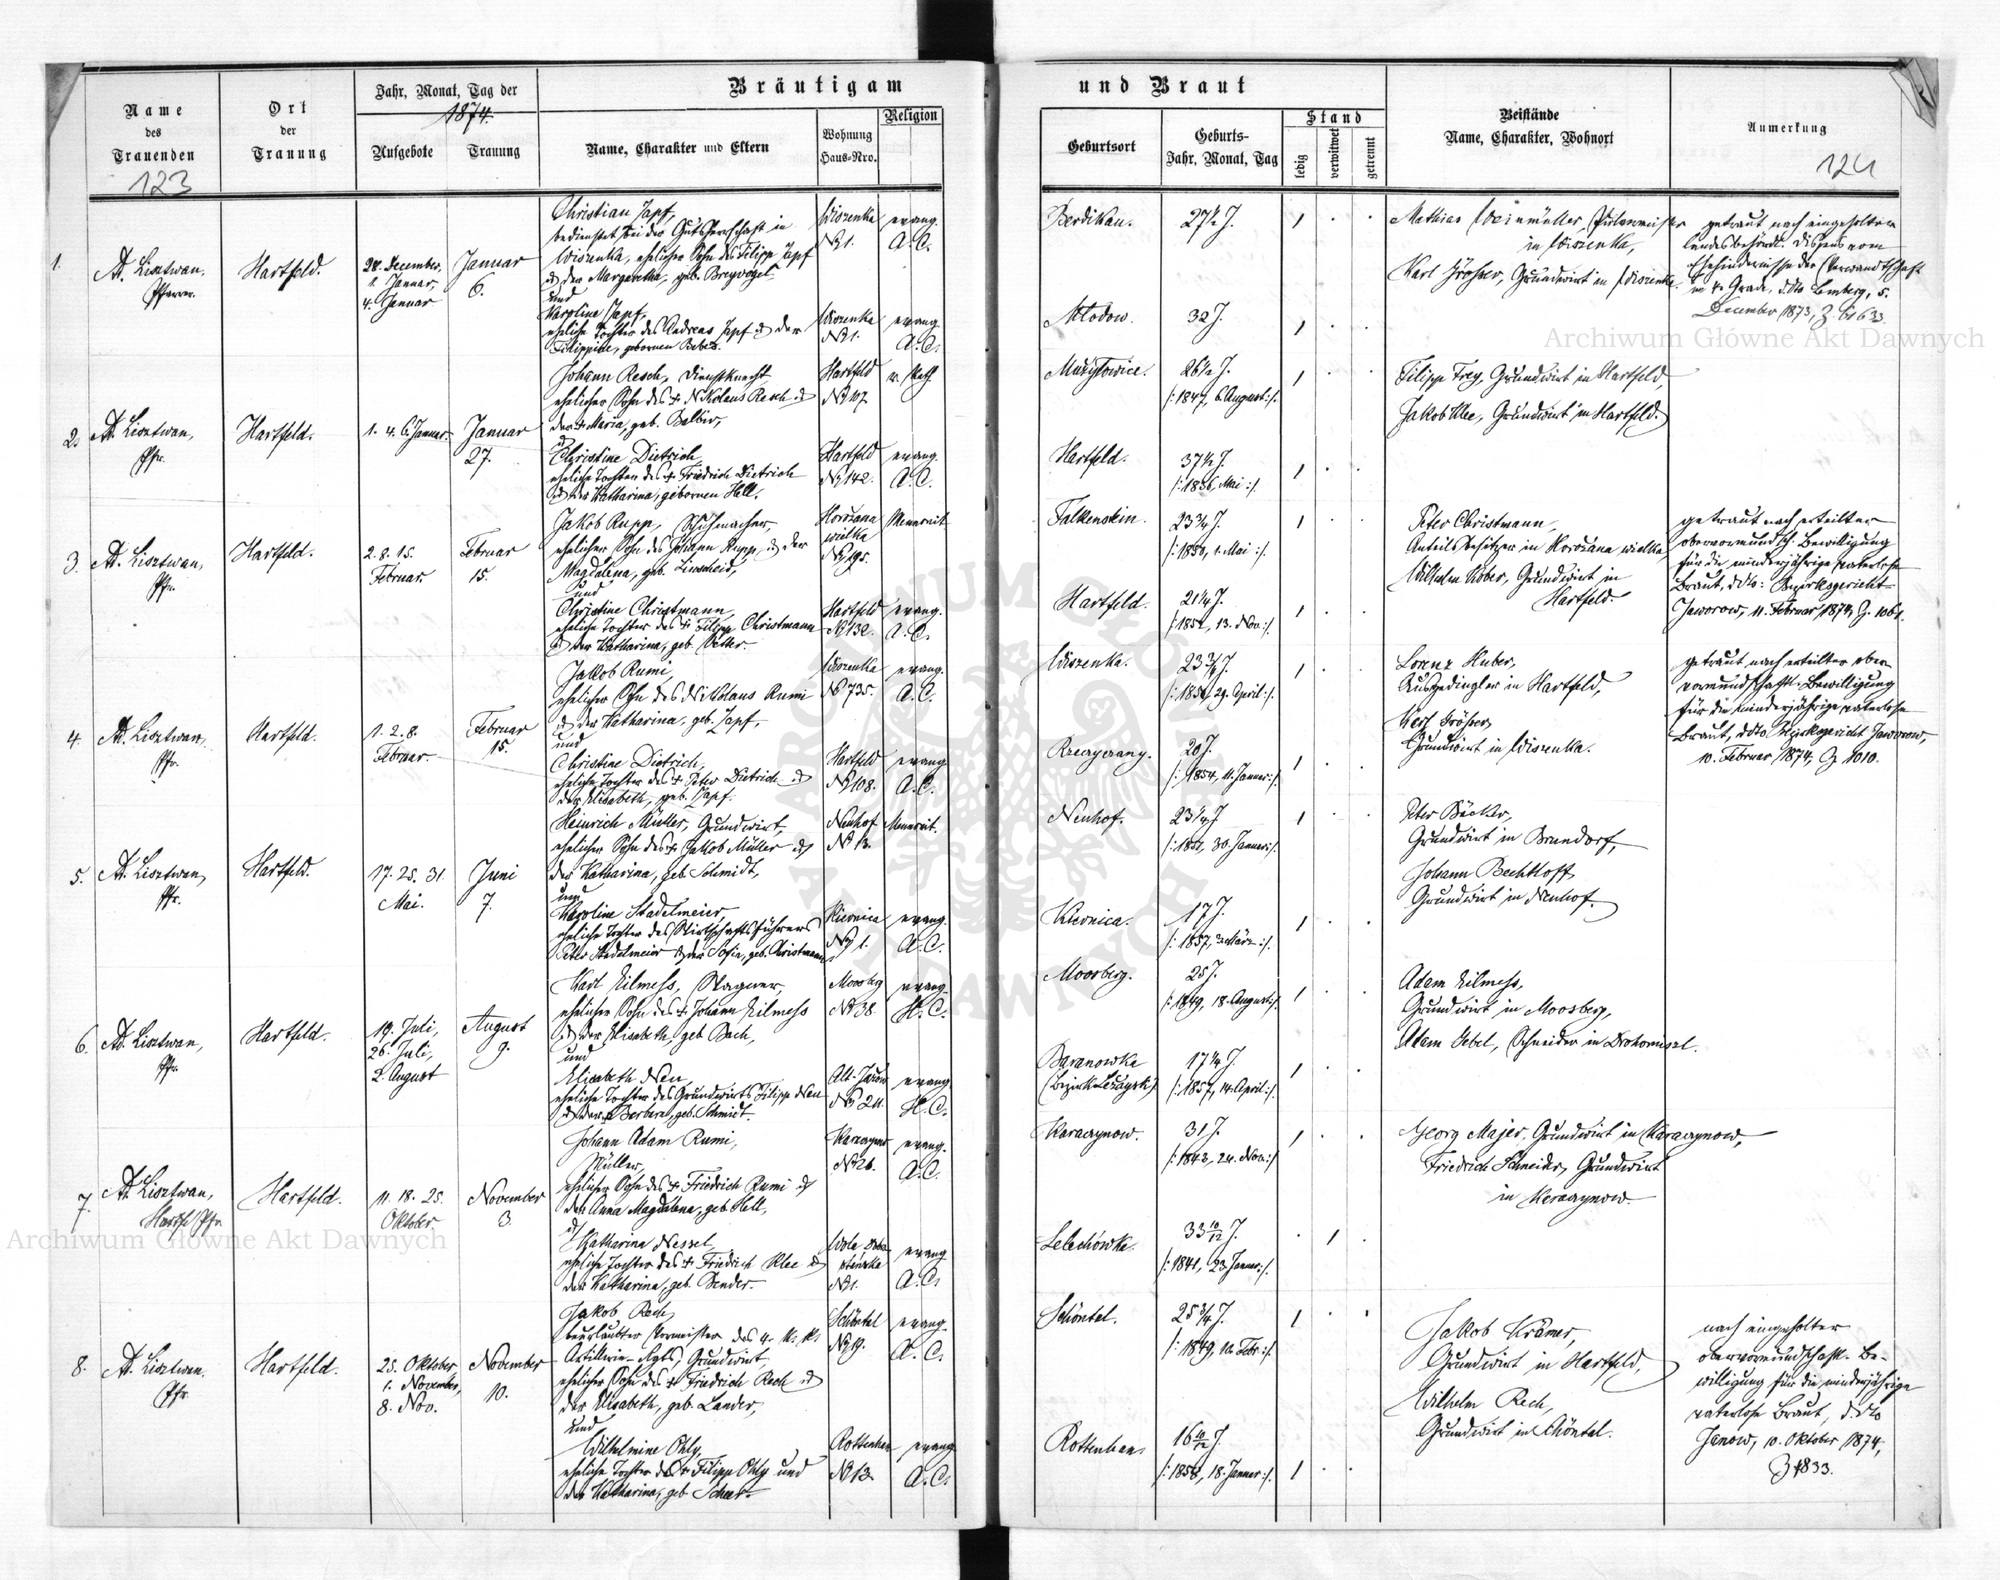 Bräutigam und Braut
Name des Trauenden
Ort der Trauung
Jahr, Monat, Tag der
1874.
Aufgebote
Trauung
Name, Charakter und Eltern
Wohnung Haus-Nro.
Religion
Geburtsort
Geburts-
Jahr, Monat, Tag
Stand
ledig
verwitwet
getrennt
Beistände
Name, Charakter, Wohnort
Anmerkung
123
124
1.
Ad. Lisztwan,
Pfarrer.
Hartfeld.
28. December,
1. Januar,
4. Januar
Januar
6.
Christian Zapf,
bedienstet bei der Gutsherrschaft in
Wiszenka, ehelicher Sohn des Filipp Zapf
der Margaretha, geb. Breyvogel
und
Karoline Zapf,
eheliche Tochter des Andreas Zapf & der
Filippine, gebornen
Wiszenka
No 1.
evang.
A. C.
Wiszenka
No 1.
evang.
A. C.
Berdikau.
27½ J.
Mlodow.
32 J.
Mathias Weinmüller,
in Wiszenka,
Karl Gröhser, Grundwirt in Wiszenka.
getraut nach eingeholten
landesbehördl. Dispens vom
Ehehindernisse der Verwandtschaft
im 4. Grade, ddto Lemberg, 5.
December 1873, Z. 61633.
2.
Ad. Lisztwan,
Pfr.
Hartfeld.
1. 4. 6. Januar
Januar
27.
Johann Resch, Dienstknecht
ehelicher Sohn des + Nikolaus Resch &
der + Maria, geb. Balbir,
&
Christine Dietrich,
eheliche Tochter des + Friedrich Dietrich
& der Katharina, gebornen Hell.
Hartfeld
No 107.
r. kath.
Hartfeld
No 142.
evang.
A. C.
Mużyłowice.
26½ J.
/: 1847, 6. August :/.
Hartfeld.
37½ J.
/: 1836, Mai :/.
Filipp Frey, Grundwirt in Hartfeld,
Jakob Klee, Grundwirt in Hartfeld.
3.
Ad. Lisztwan,
Pfr.
Hartfeld.
2. 8. 15.
Februar.
Februar
15.
Jakob Rupp, Schuhmacher,
ehelicher Sohn des Johann Rupp, & der
Magdalena, geb. Linscheid,
und
Christine Christmann,
eheliche Tochter des + Filipp Christmann
& der Katharina, geb. Vetter.
Horożana
wielka
No 195.
Mennonit
Hartfeld
No 132.
evang.
A. C.
Falkenstein.
23¾ J.
/: 1850, 1. Mai :/.
Hartfeld.
21¼ J.
/: 1852, 13. Nov. :/.
Peter Christmann,
Anteilsbesitzer in Horożana wielka,
Wilhelm Kober, Grundwirt in
Hartfeld.
getraut nach erteilter
obervormundsch. Bewilligung
für die minderjährige vaterlose
Braut, ddto: Bezirksgericht
Jaworow, 11. Februar 1874, Z. 1061.
4.
Ad. Lisztwan,
Pfr.
Hartfeld.
1. 2. 8.
Februar.
Februar
15.
Jakob Rumi,
ehelicher Sohn des Nikolaus Rumi
& der Katharina, geb. Zapf,
und
Christine Dietrich,
eheliche Tochter des + Peter Dietrich &
der Elisabeth, geb. Zapf.
Wiszenka
No 735.
evang.
A. C.
Hartfeld
No 108.
evang.
A. C.
Wiszenka.
23¾ J.
/: 1850, 29. April :/.
Rzeczyczany.
20 J.
/: 1854, 11. Januar :/.
Lorenz Huber,
Ausgedingler in Hartfeld,
Karl Gröhser,
Grundwirt in Wiszenka.
getraut nach erteilter ober-
vormundschaftl. Bewilligung
für die minderjährige vaterlose
Braut, ddto Bezirksgericht Jaworow,
10. Februar 1874, Z. 1010.
5.
Ad. Lisztwan,
Pfr.
Hartfeld.
17. 25. 31.
Mai.
Juni
7.
Heinrich Müller, Grundwirt,
ehelicher Sohn des + Jakob Müller &
der Katharina, geb. Schmidt,
und
Karoline Stadelmeier,
eheliche Tochter des Wirtschaftsführers
Peter Stadelmeier & der Sofia, geb. Christmann
Neuhof
No 13.
Mennonit.
Kiernica
No 1.
evang.
A. C.
Neuhof.
23¼ J.
/: 1851, 30. Januar :/.
Kiernica.
17 J.
/: 1857, März :/.
Peter Bäcker,
Grundwirt in Brundorf,
Johann Bechtloff,
Grundwirt in Neuhof.
6.
Ad. Lisztwan,
Pfr.
Hartfeld.
19. Juli,
26. Juli,
2. August
August
9.
Karl Kilmess, Wagner,
ehelicher Sohn des + Johann Kilmess
& der Elisabeth, geb. Bach,
und
Elisabeth Neu,
eheliche Tochter des Grundwirts Filipp Neu
& der + Barbara, geb. Schmidt.
Moosberg
No 38.
evang.
H. C.
Alt-Jazow
No 24.
evang.
H. C.
Moosberg.
25 J.
/: 1849, 18. August :/.
Baranowka
17¼ J.
/: 1857, 14. April :/.
Adam Kilmess,
Grundwirt in Moosberg,
Adam Gebel, Schneider in Drohomyszl.
7.
Ad. Lisztwan,
Hartf. Pfr.
Hartfeld.
11. 18. 25.
Oktober.
November
3.
Johann Adam Rumi,
Müller,
ehelicher Sohn des + Friedrich Rumi &
der Anna Magdalena, geb. Hell,
&
Katharina Nessel,
eheliche Tochter des + Friedrich Klee &
der Katharina, geb. Bender.
No 26.
evang.
A. C.
Wola
No 1.
evang.
A. C.
Karaczynow.
31 J.
/: 1843, 24. Nov. :/
Lelechówka.
33 10/12 J.
/: 1841, 23. Januar :/.
Georg Majer, Grundwirt in Karaczynow,
Friedrich Schneider, Grundwirt
in Karaczynow
8.
Ad. Lisztwan.
Pfr.
Hartfeld.
25. Oktober
1. November,
8. Nov.
November
10.
Jakob Rech,
beurlaubter Vormeister des 4. k. k.
Artillerie-Rgts, Grundwirt,
ehelicher Sohn des + Friedrich Rech &
der Elisabeth, geb. Lander,
und
Wilhelmine Ohly,
eheliche Tochter des + Filipp Ohly und
der Katharina, geb. Scheer.
Schöntal
No 9.
evang.
A. C.
Rottenhan
No 13.
evang.
A. C.
Schöntal.
25¾ J.
/: 1849, 10. Febr. :/
Rottenhan
16 10/12 J.
/: 1858, 18. Januar :/.
Jakob Krämer,
Grundwirt in Hartfeld,
Wilhelm Rech,
Grundwirt in Schöntal.
nach eingeholter
obervormundschaftl. Be-
willigung für die minderjährige
vaterlose Braut, ddto
Janow, 10. Oktober 1874,
Z 4833.
Archiwum Główne Akt Dawnych
Archiwum Główne Akt Dawnych
ARCHIWUM GŁÓWNE AKT DAWNYCH